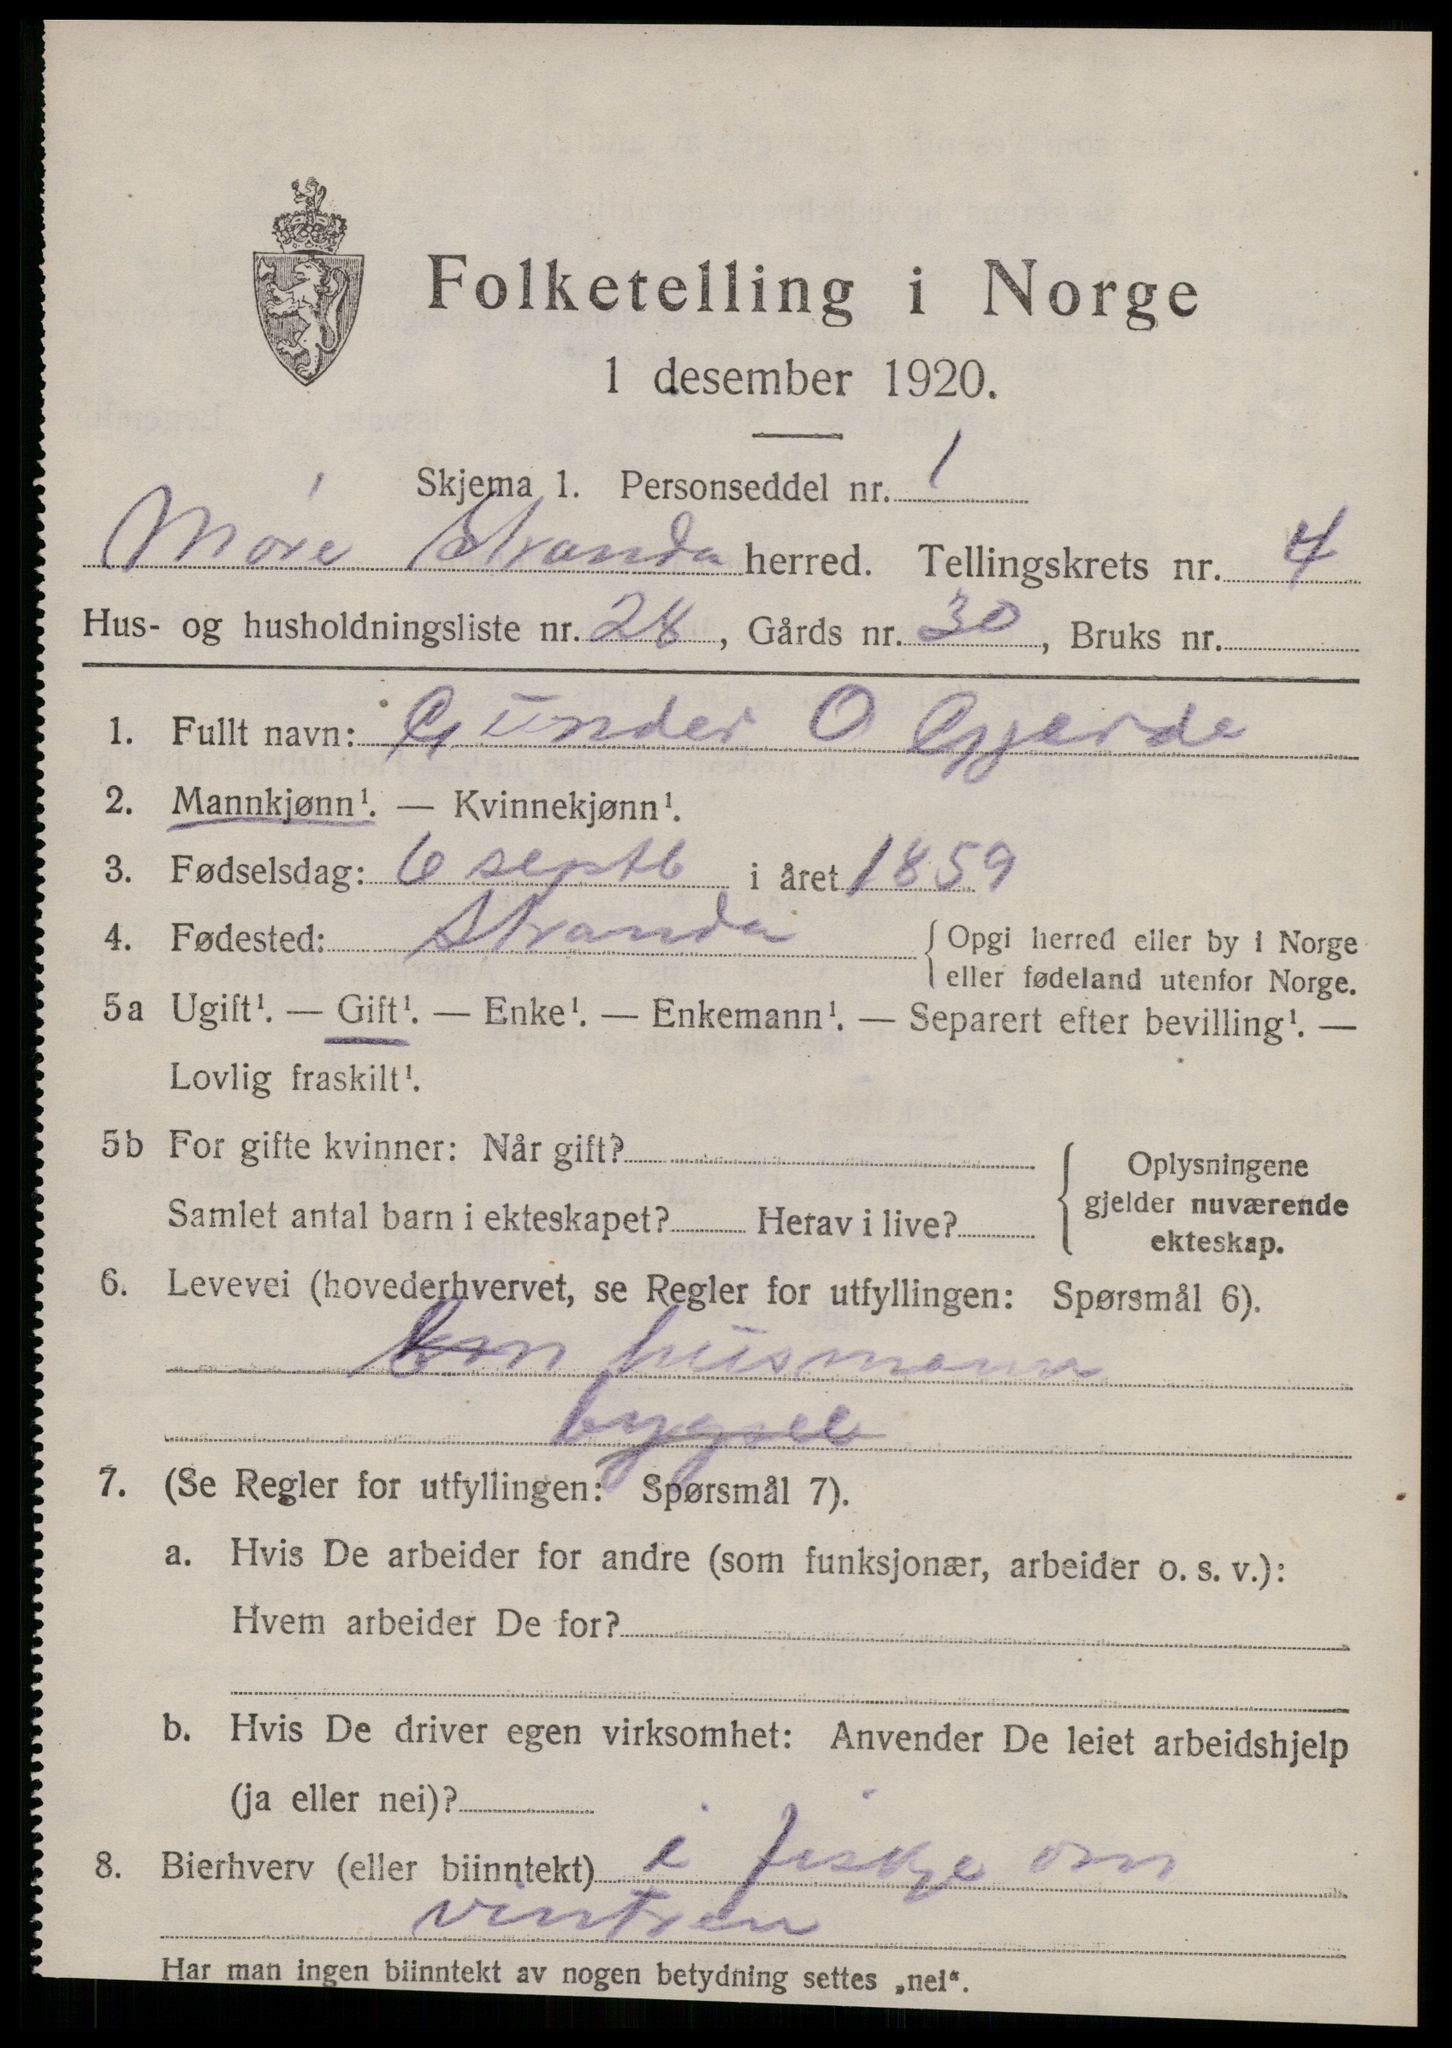 Folketelling i Norge
1 desember 1920.
Skjema 1. Personseddel nr. 1
Møre Stranda herred. Tellingskrets nr. 4
Hus- og husholdningsliste nr. 28, Gårds nr. 30, Bruks nr.
1. Fullt navn: Gunder O Gjerde
2. Mannkjønn¹. — Kvinnekjønn¹.
3. Fødselsdag: 6 septb i året 1859
4. Fødested: Stranda {Opgi herred eller by i Norge
eller fødeland utenfor Norge.
5a Ugift¹. — Gift¹. — Enke¹. — Enkemann¹. — Separert efter bevilling¹. —
Lovlig fraskilt¹.
5b For gifte kvinner: Når gift?
Samlet antal barn i ekteskapet? Herav i live?
Oplysningene
gjelder nuværende
ekteskap.
6. Levevei (hovederhvervet, se Regler for utfyllingen: Spørsmål 6).
husmann
bygsel
7. (Se Regler for utfyllingen: Spørsmål 7).
a. Hvis De arbeider for andre (som funksjonær, arbeider o. s. v.):
Hvem arbeider De for?
b. Hvis De driver egen virksomhet: Anvender De leiet arbeidshjelp
(ja eller nei)?
8. Bierhverv (eller biinntekt) i fiskje om
vintren
Har man ingen biinntekt av nogen betydning settes „nei“.